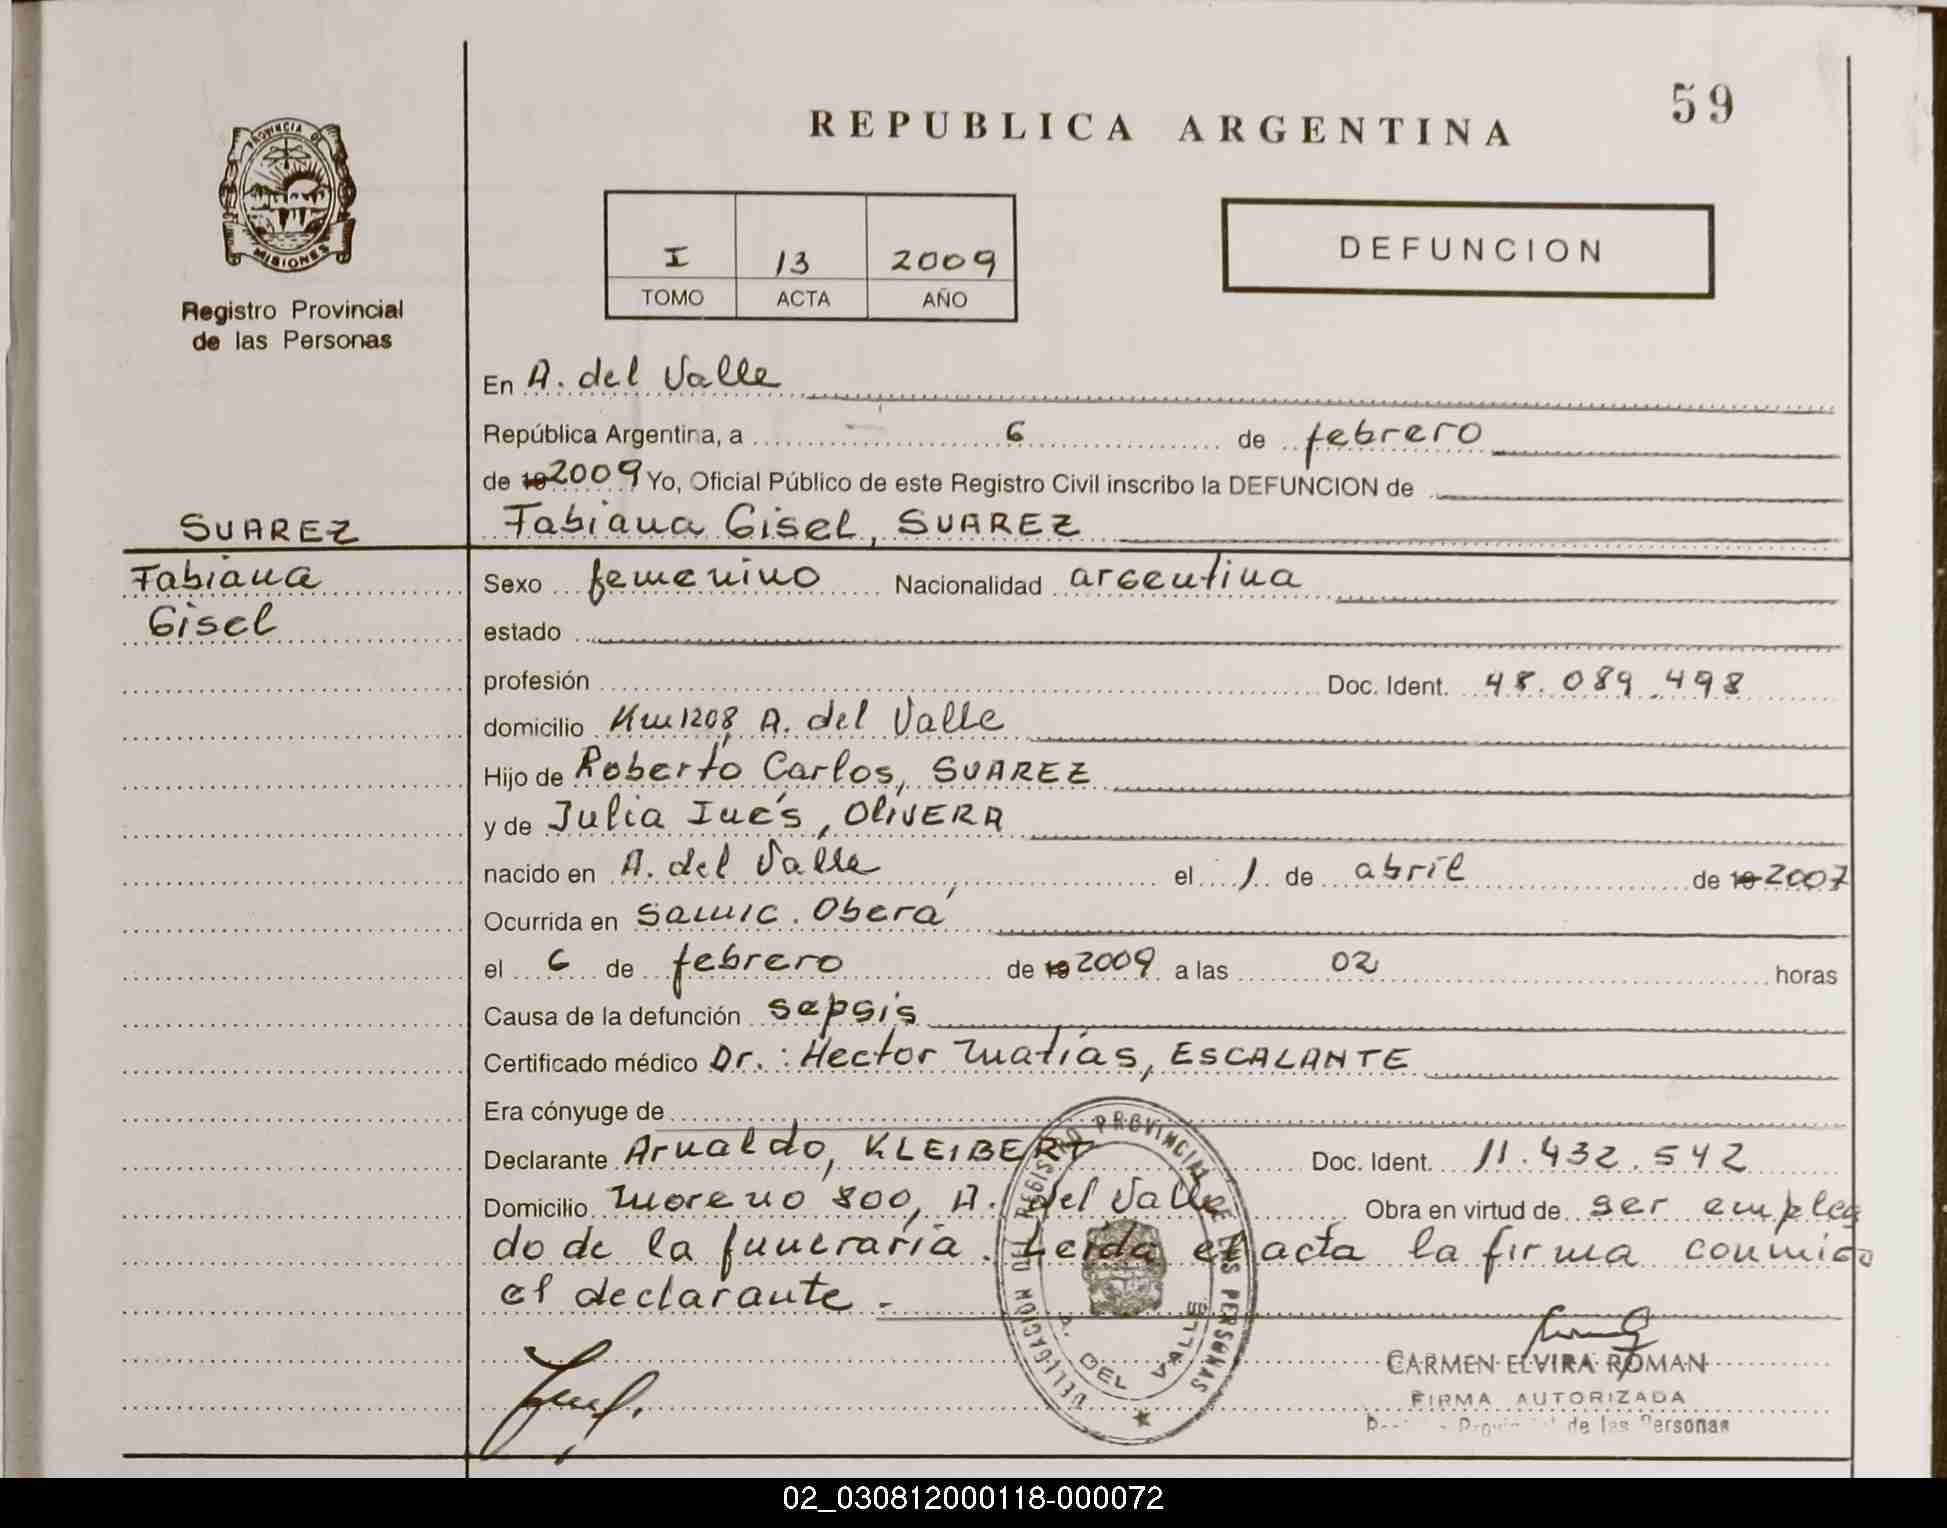 59
REPUBLICA ARGENTINA
PROVINCIA DE
MISIONES
Registro Provincial
de las Personas
I 13 2009
TOMO ACTA AÑO
DEFUNCION
En A. del Valle
República Argentina, a 6 de febrero
de 19 2009 Yo, Oficial Público de este Registro Civil inscribo la DEFUNCION de
SUAREZ
Fabiana Gisel, SUAREZ
Fabiana
Gisel
Sexo femenino Nacionalidad argentina
estado
profesión Doc. Ident. 48.089.498
domicilio Km 1208, A. del Valle
Hijo de Roberto Carlos, SUAREZ
y de Julia Inés, OLIVERA
nacido en A. del Valle, el 1 de abril de 19 2007
Ocurrida en Samic. Oberá
el 6 de febrero de 19 2009 a las 02 horas
Causa de la defunción sepsis
Certificado médico Dr.: Hector Matías, ESCALANTE
Era cónyuge de
Declarante Arnaldo, KLEIBERT Doc. Ident. 11.432.542
Domicilio Moreno 800, A. del Valle Obra en virtud de ser emplea
do de la funeraria. Leída el acta la firma conmigo
el declarante.-
DELEGACION DEL REGISTRO PROVINCIAL DE LAS PERSONAS
A. DEL VALLE
CARMEN ELVIRA ROMAN
FIRMA AUTORIZADA
de las Personas
02_030812000118-000072